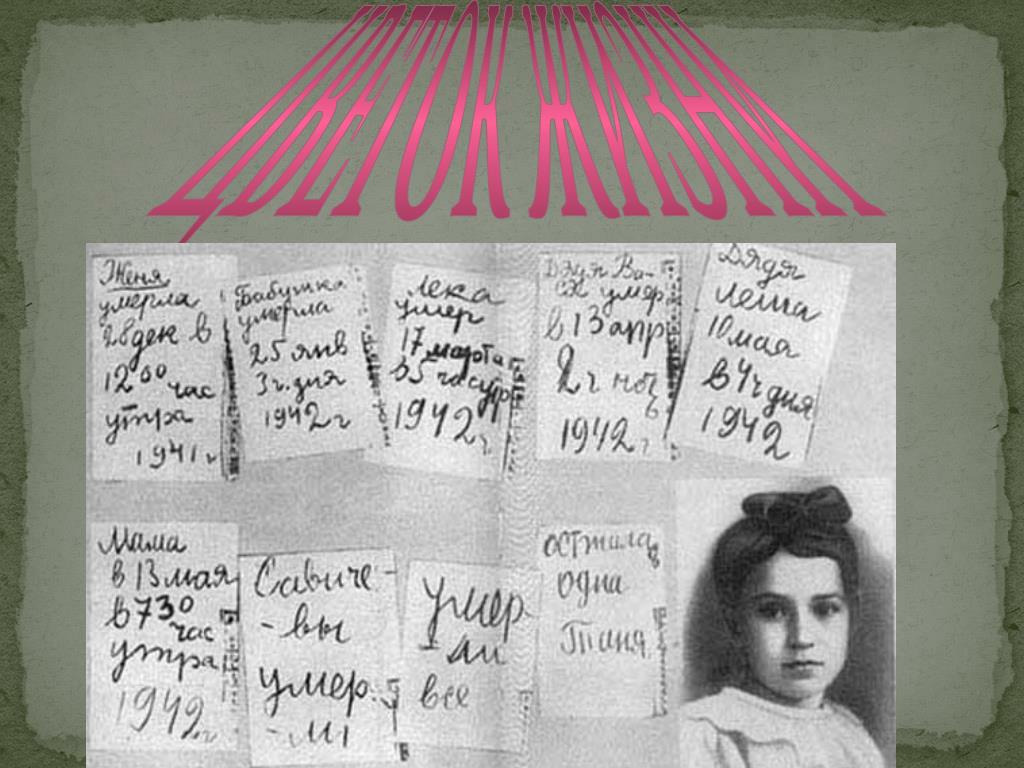 ЦВЕТОК ЖИЗНИ
Женя
умерла
28 дек в
12 00 час
утра
1941 г
Бабушка
умерла
25 янв
3 ч. дня
1942 г
Лека
умер
17 марта
в 5 час утр
1942 г
Дядя Ва-
ся умер
в 13 апр
2 ч ноч
1942 г
Дядя
Леша
10 мая
в 4 ч дня
1942
Мама
в 13 мая
в 7 30
час
утра
1942 г
Савиче-
-вы
умер
-ли
Умер
-ли
все
осталась
одна
Таня